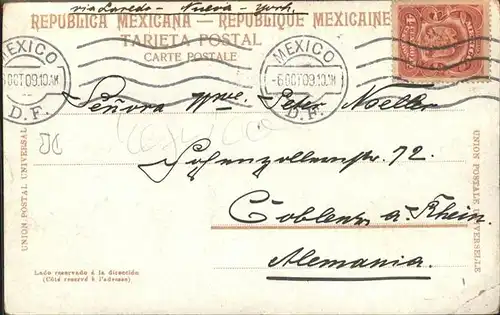 via Laredo - Nueva - York.
REPUBLICA MEXICANA - REPUBLIQUE MEXICAINE
TARJETA POSTAL
CARTE POSTALE
MEXICO
6 OCT 09. 10. AM
D. F.
MEXICO
6 OCT 09. 10. AM
D. F.
Señora Peter Noeller
Hohenzollernstr. 72.
Coblenz a. Rhein.
Alemania.
UNION POSTAL UNIVERSAL
UNION POSTALE UNIVERSELLE
Lado reservado á la dirección
(Côté reservé à l'adresse)